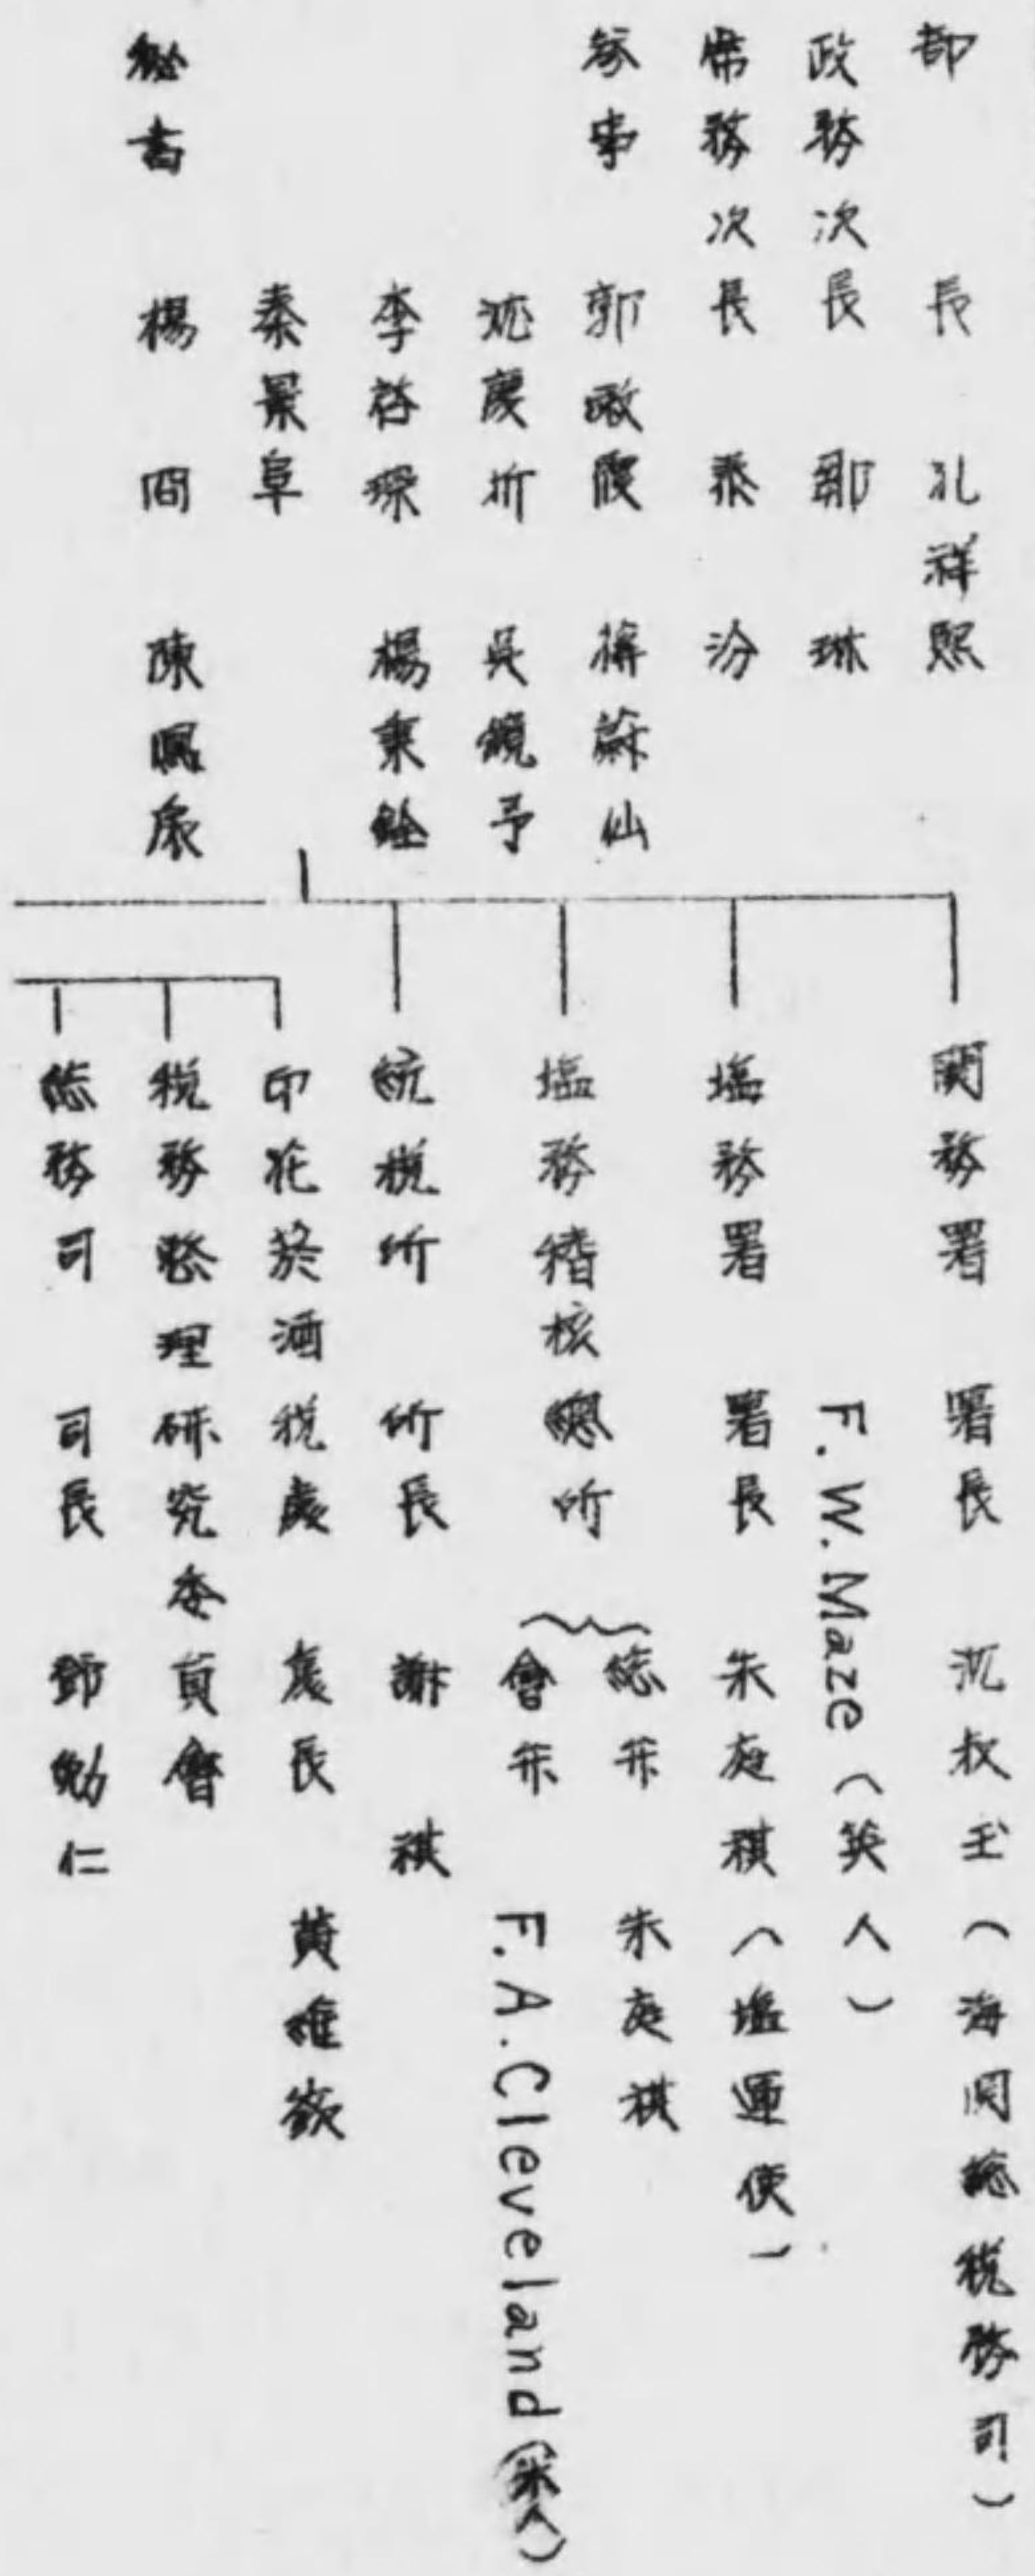 部長 孔祥熙
政務次長 鄒琳
常務次長 秦汾
參事 郭敬
吳鏡予
李 楊秉銓
秦景阜
秘書 楊 陳
關務署 署長 沈叔玉（海関総税務司）
F.W.Maze（英人）
塩務署 署長 朱庭祺（塩運使）
塩務稽核總所
総弁 朱庭祺
會弁 F.A.Cleveland（米人）
統税所 所長 謝祺
印花菸酒税處 處長 黄維
税務整理研究委員會
総務司 司長 鄧勉仁